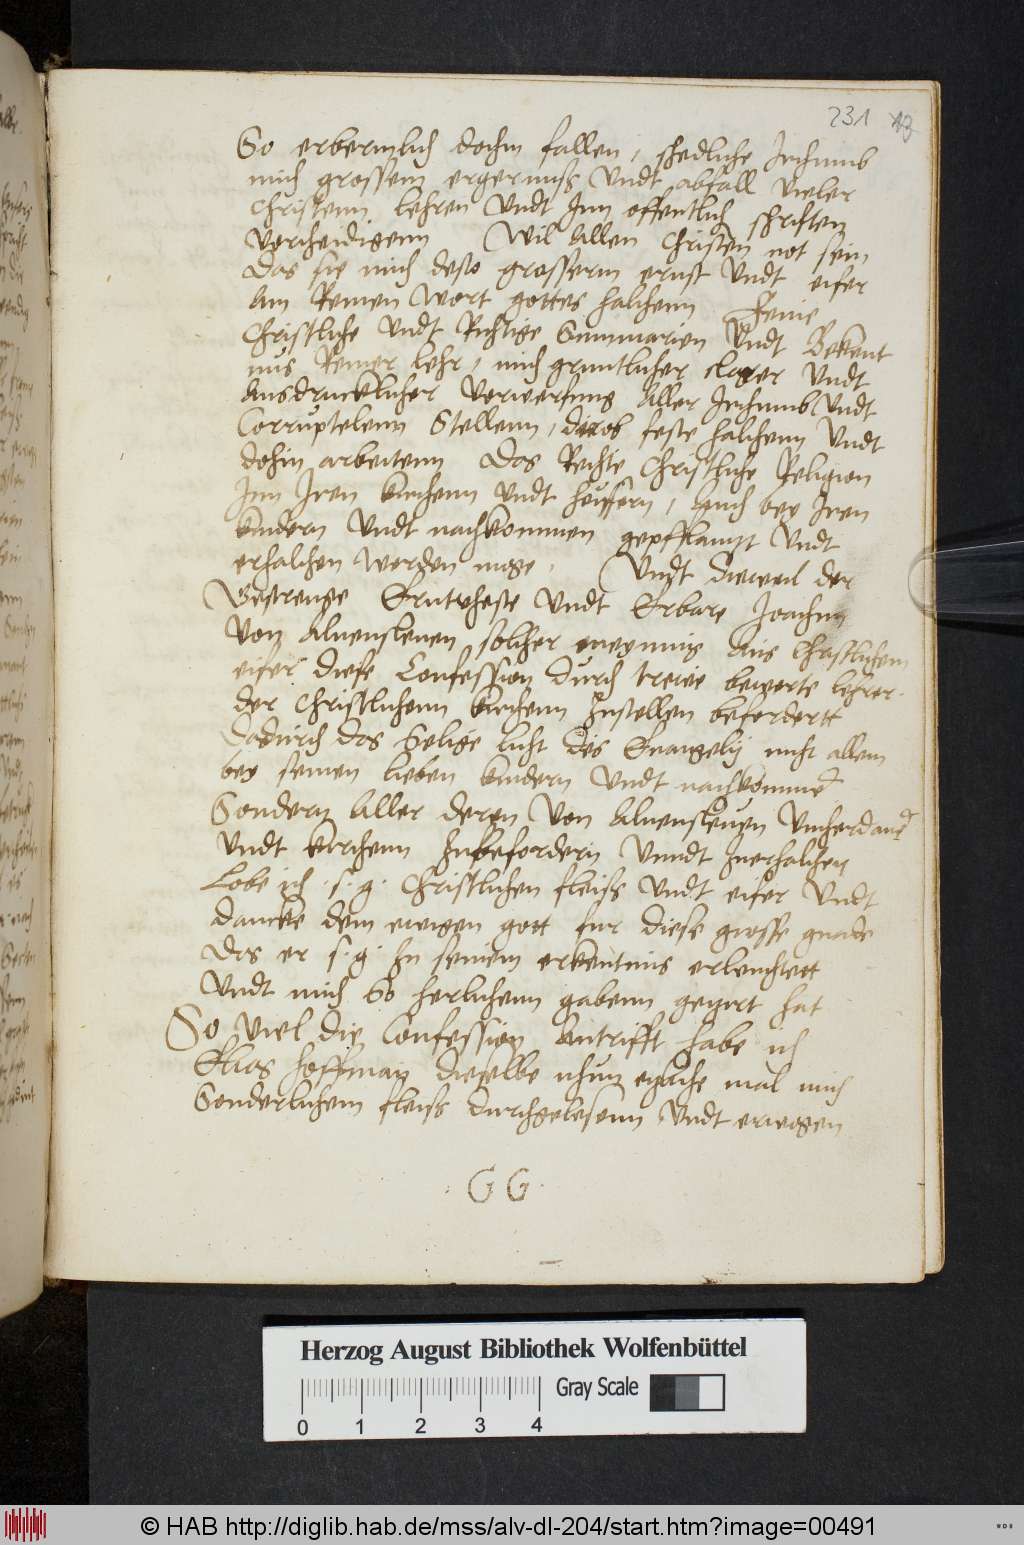 231 43
So erbermlich dohin fallen, schedliche Irthumb
mich grossem ergernuss Vndt abfall vieler
Christenn lehren Vndt Inn offentlich schriften
Vertheidigenn Wil Allen Christen not sein
Das sie mich desto grosserm ernst Vndt eifer
Am Reinen Wort gottes halthenn Feine
Christliche Vndt Richtige Summarien Vndt Bekent
nus Reiner lehr, mich gruntlicher clarer Vndt
Ausdrucklicher Verwerfung Aller Irthumb Vndt
Corruptelenn Stellenn, darob feste halthenn Vndt
dohin arbeitenn Das Rechte Christliche Religion
Inn Iren kirchenn Vndt heussern, Auch bey Iren
kindern Vndt nachkommen gepfflantzt Vndt
erhalthen Werden moge. Vndt dieweil der
Gestrenge Erntveheste Vndt Erbare Joachim
Von Aluensleuen solcher meynung Aus Christlichem
eifer diese Confession durch trewe bewerte lehrer
der Christlichenn kirchenn Zustellen befordertt
Dadurch das Selige licht des Euangelij nicht allein
bey seinen lieben kindern Vndt nachkomme
Sondern Aller deren Von Aluensleuen Vntherdane
Vndt kirchenn Zubefordern Vnndt Zuerhalthen
Lobe ich s. g. Christlichen fleiss Vndt eifer Vndt
dancke dem ewigen gott fur diese grosse gnade
Das er s. g. Zu seinem erkentnis erleuchtett
Vndt mich So herlichenn gabenn getzirt hat
So Viel die Confession Antrifft habe ich
Elias Hoffman dieselbe nhun etzliche mal mich
Sonderlichem fleiss durchgelesenn Vndt erwogen
G G
Herzog August Bibliothek Wolfenbüttel
Gray Scale
0 1 2 3 4
© HAB http://diglib.hab.de/mss/alv-dl-204/start.htm?image=00491